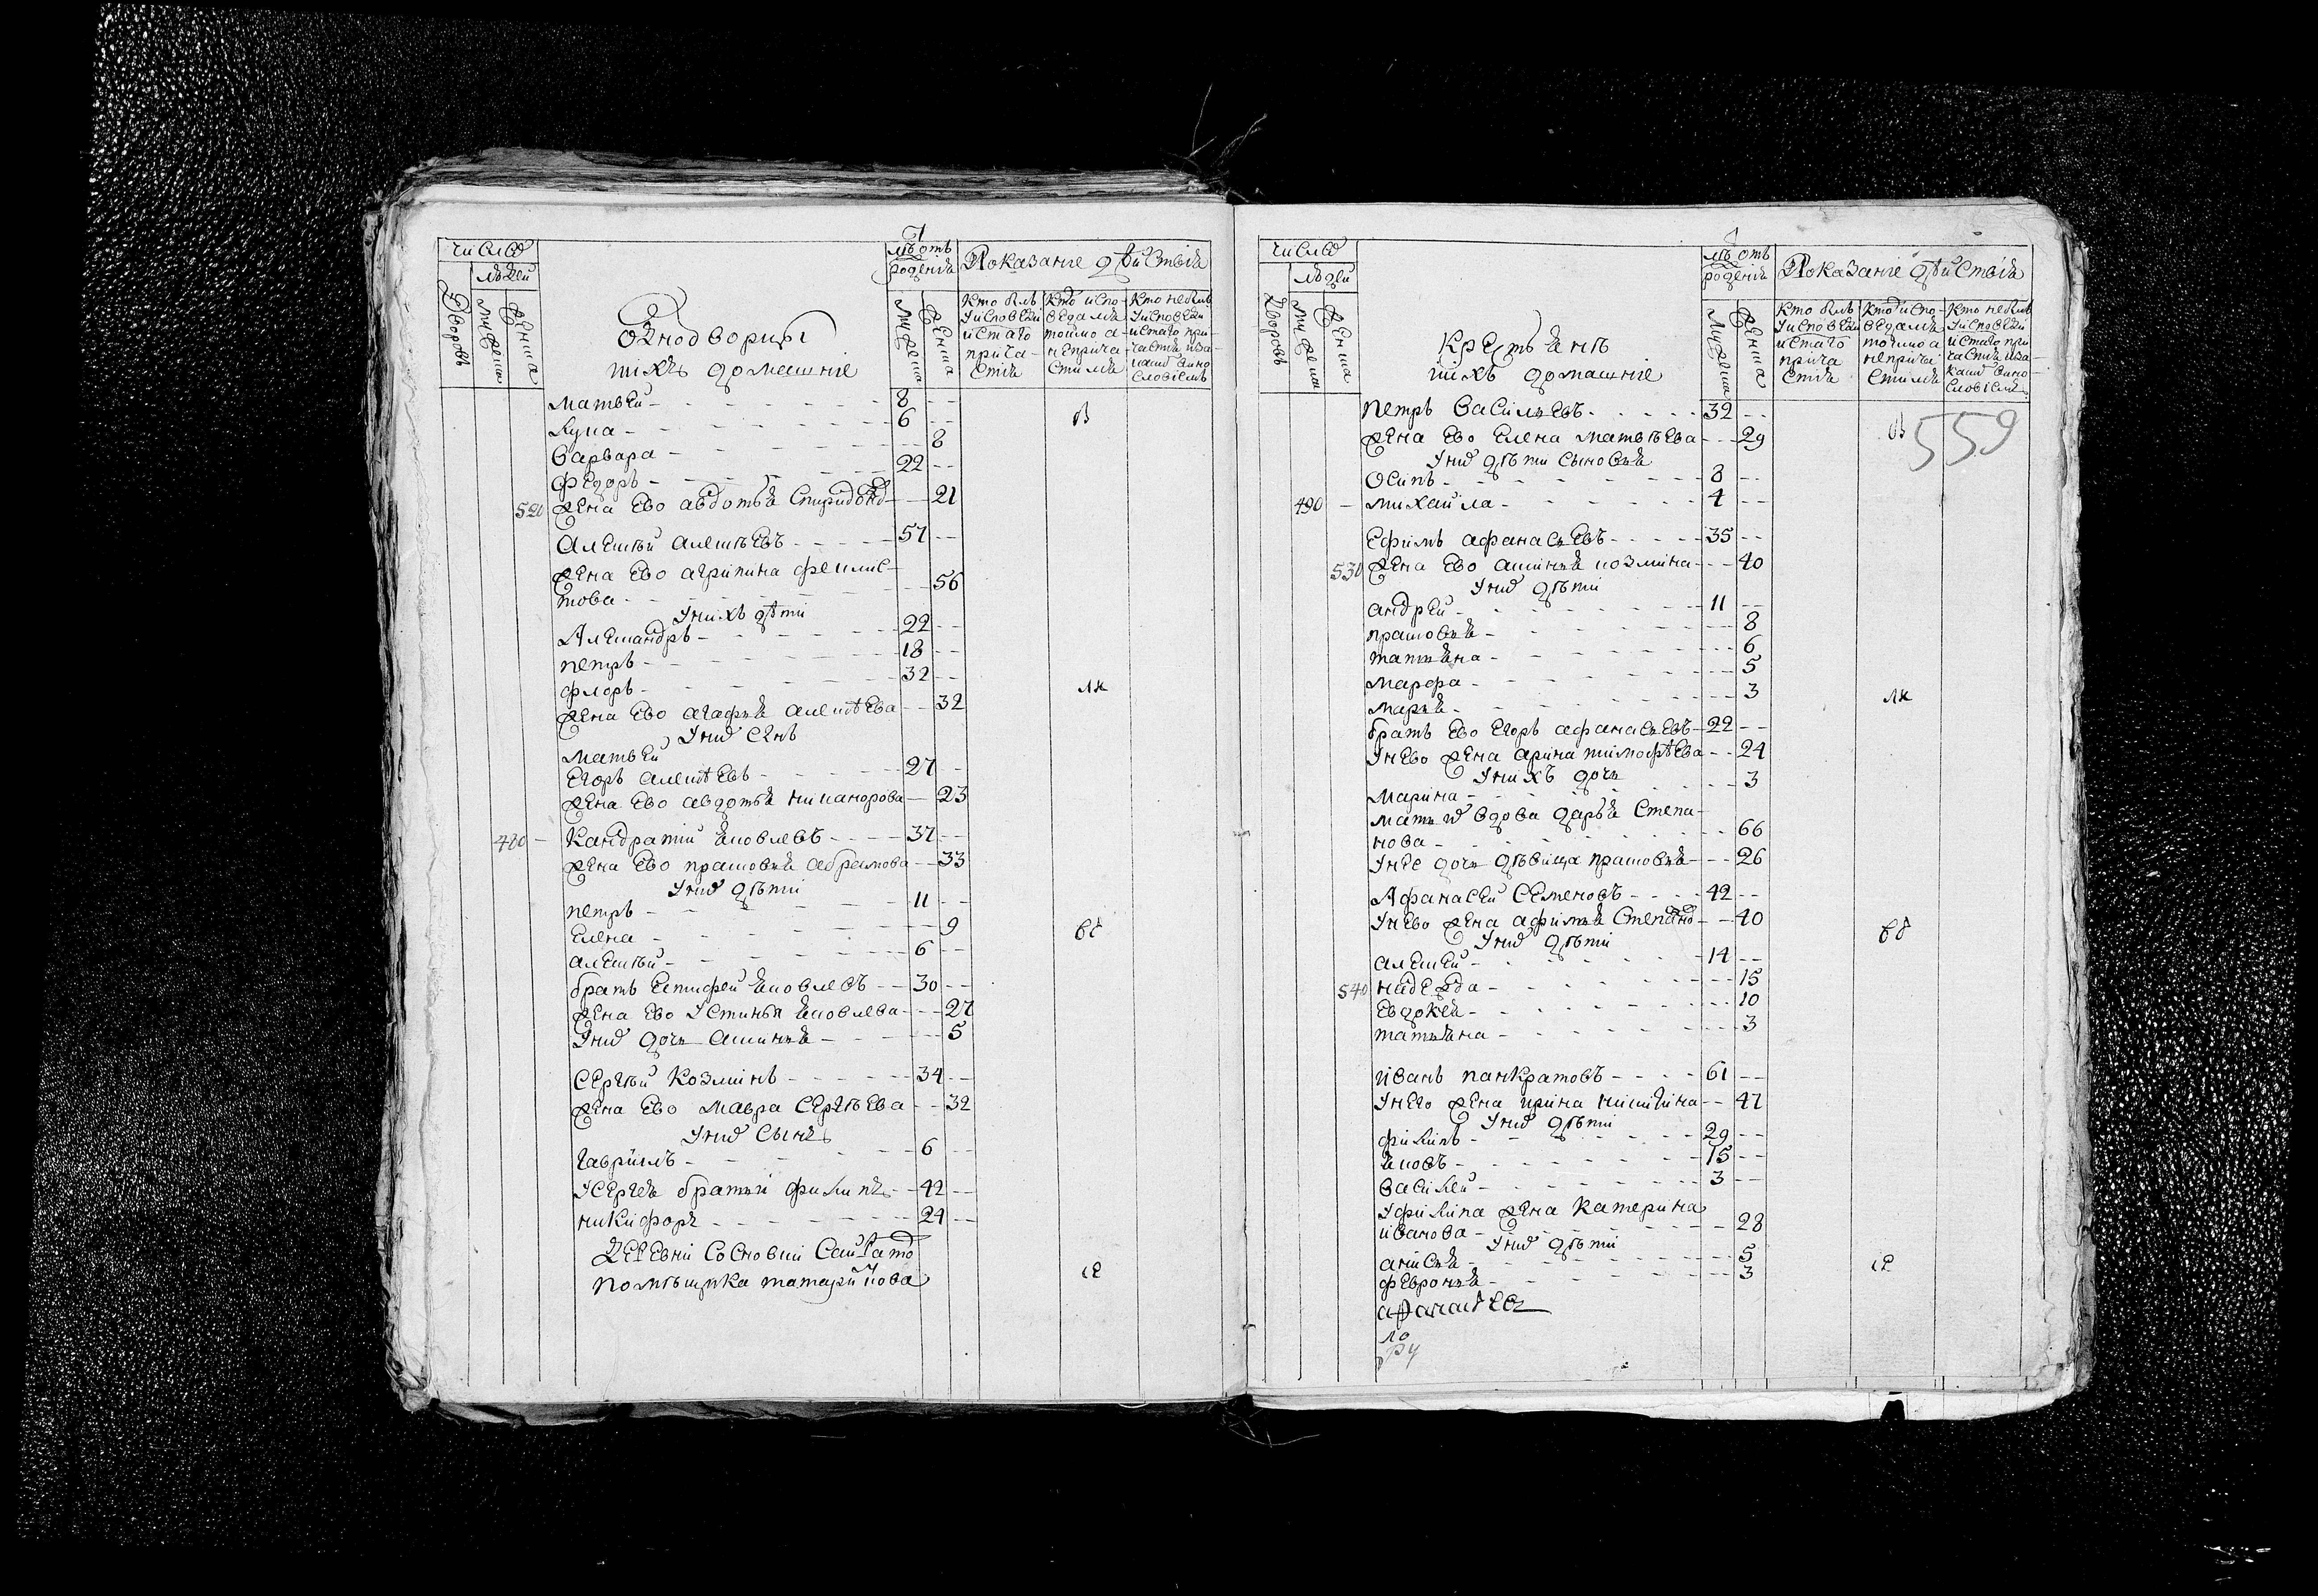 число
людей
Дворовъ
мужеска
женска
однодворцы
ихъ домашние
лѣ отъ
рожения
мужеска
женска
Показание дѣйствия
кто былъ
у исповеди
и стаго
прича-
стия
кто испо-
ведался
токмо а
неприча-
стился
кто небылъ
у исповеди
и стаго при-
частия и за
каким вино
словиемъ
матвей - 8 - -
лука - 6 - -
варвара - - - 8
федоръ - 22 - -
520 жена Ево авдотья Спиридоно - - 21
Алексѣй алексѣевъ - 57 - -
жена Ево агрипина феклис-
това - - - 56
у нихъ дѣти
Александръ - 22 - -
петръ - 18 - -
флоръ - 32 - -
жена Ево агафья алексѣева - - 32
у них сынъ
матвей
Егоръ алексѣевъ - 27 - -
жена Ево авдотья никанорова - - 23
480 - Кандратий яковлевъ - 37 - -
жена Ево прасковья абрамова - - 33
у них дѣти
петръ - 11 - -
Елена - - - 9
алексѣй - 6 - -
братъ Епифей яковлевъ - 30 - -
жена Ево Устинья яковлева - - 27
у них дочь аксинья - - - 5
Сергѣй Козминъ - 34 - -
жена Ево мавра Сергѣева - - 32
у них сынъ
гаврилъ - 6 - -
у Сергея братья филипъ - 42 - -
никифоръ - 24 - -
деревни Сосновки
помѣщика татаринова
число
людей
Дворовъ
мужеска
женска
Крестьянѣ
ихъ домашние
лѣ отъ
рожения
мужеска
женска
Показание дѣйствия
кто былъ
у исповеди
и стаго
прича
стия
кто испо-
ведался
токмо а
неприча
стился
кто небылъ
у исповеди
и стаго при
частия и за
каким вино
словиемъ
559
петръ васильевъ - 32 - -
жена Ево Елена матвѣева - - 29
у них дѣти сыновья
Осипъ - 8 - -
490 - михайла - 4 - -
Ефимъ афанасьевъ - 35 - -
530 жена Ево аксинья козмина - - 40
у них дѣти
андрей - 11 - -
прасковья - - - 8
татьяна - - - 6
марфа - - - 5
марья - - - 3
братъ Ево Егоръ афанасьевъ - 22 - -
у нево жена арина тимофѣева - - 24
у нихъ дочь
марина - - - 3
мать их вдова дарья Степа-
нова - - - 66
у нее дочь дѣвица прасковья - - 26
Афанасей Семеновъ - 42 - -
у нево жена афимья Степано - - 40
у них дѣти
алексей - 14 - -
540 надежда - - - 15
Евдокея - - - 10
татьяна - - - 3
иванъ панкратовъ - 61 - -
у него жена ирина никитина - - 47
у них дѣти
филипъ - 29 - -
яковъ - 15 - -
василей - 3 - -
у филипа жена катерина
иванова - - - 28
у них дѣти
анисья - - - 5
февронья - - - 3